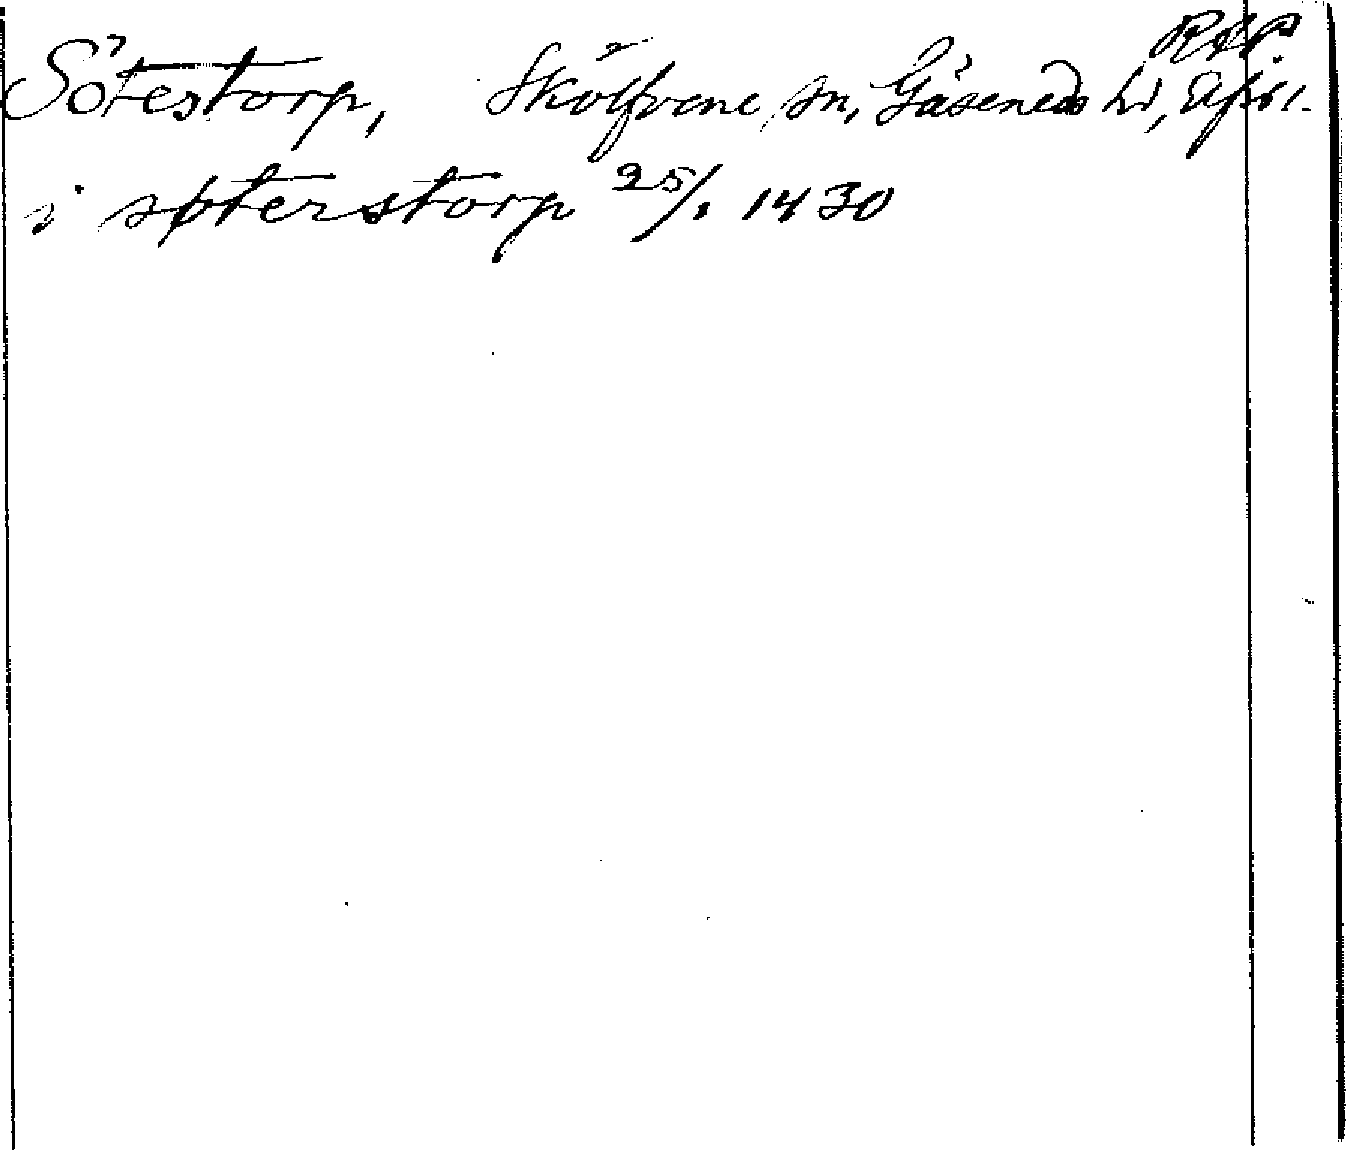 RAP.
Sötestorp, Skölfvene sn, Gäseneds hd, Äfsb l.
i søterstorp 25/1 1430